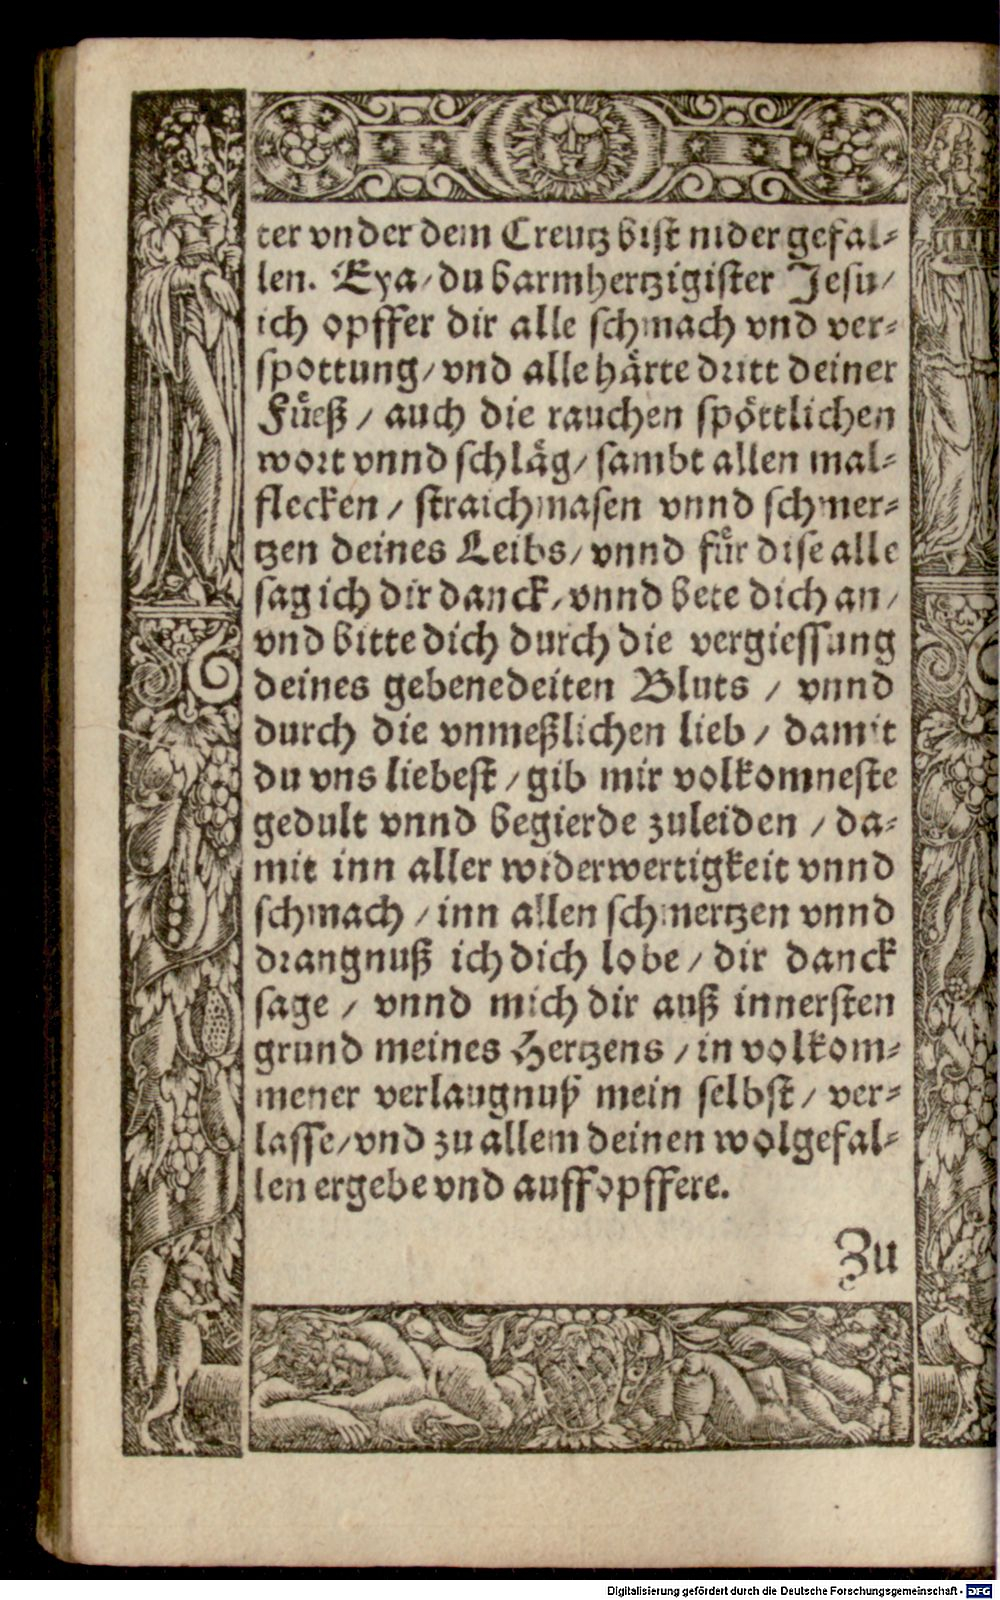 ter vnder dem Creutz bist nider gefal-
len. Eya/ du barmhertzigister Jesu/
ich opffer dir alle schmach vnd ver-
spottung/ vnd alle härte dritt deiner
Füeß / auch die rauchen spöttlichen
wort vnnd schläg/ sambt allen mal-
flecken / straichmasen vnnd schmer-
tzen deines Leibs/ vnnd für dise alle
sag ich dir danck/ vnnd bete dich an/
vnd bitte dich durch die vergiessung
deines gebenedeiten Bluts / vnnd
durch die vnmeßlichen lieb / damit
du vns liebest / gib mir volkomneste
gedult vnnd begierde zuleiden / da-
mit inn aller widerwertigkeit vnnd
schmach / inn allen schmertzen vnnd
drangnuß ich dich lobe / dir danck
sage / vnnd mich dir auß innersten
grund meines Hertzens / in volkom-
mener verlaugnuß mein selbst / ver-
lasse/ vnd zu allem deinen wolgefal-
len ergebe vnd auffopffere.
Zu
Digitalisierung gefördert durch die Deutsche Forschungsgemeinschaft - DFG